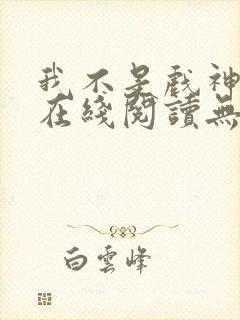 我不是戲神
在綫閱讀無
白雲峰